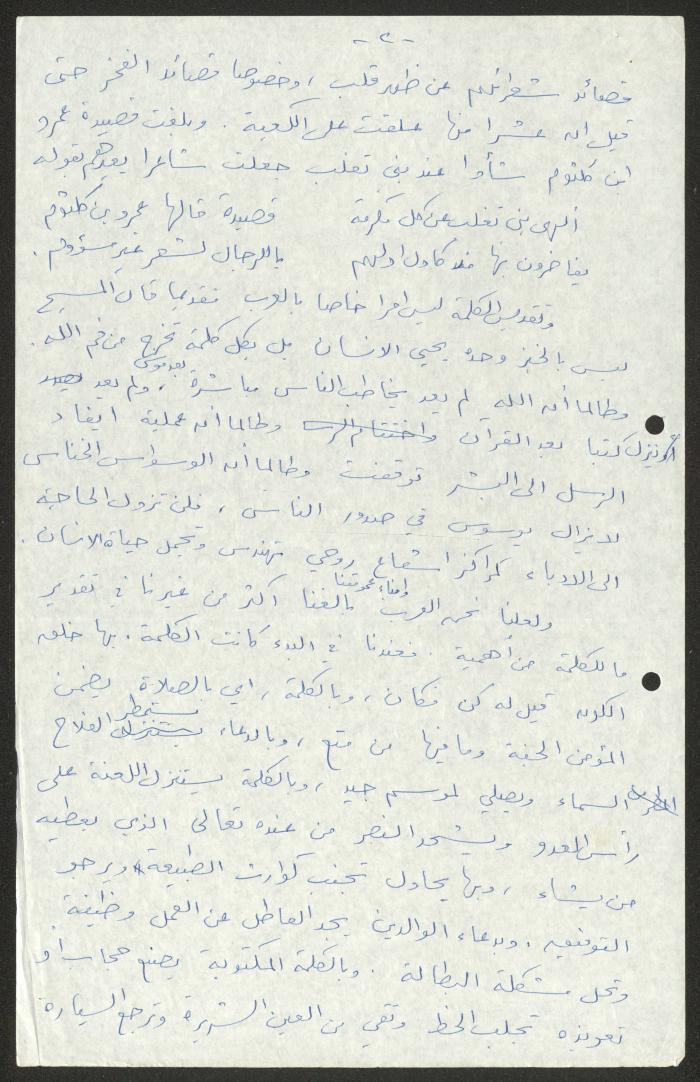 - ٢ -
قصائد شعرائهم عن ظهر قلب ، وخصوصا قصائد الفخر حتى
قيل ان عشرا منها علقت على الكعبة . وبلغت قصيدة عمرو
ابن كلثوم شأوا عند بني تغلب جعلت شاعرا يعيرهم بقوله
ألهى بني تغلب عن كل مكرمة قصيدة قالها عمرو بن كلثوم
يفاخرون بها مذ كان اولهم ياللرجال لشعر غير مسؤوم .
وتقديس الكلمة ليس امرا خاصا بالعرب فقديما قال المسيح
ليس بالخبز وحده يحيى الانسان بل بكل كلمة تخرج من فم الله .
وطالما أن الله لم يعد يخاطب الناس مباشرة بعد موسى ، ولم يعد
أو ينزل كتبا بعد القرآن واختتام الر وطالما أن عملية ايفاد
الرسل الى البشر توقفت وطالما أن الوسواس الخناس
لا يزال يوسوس في صدور الناس ، فلن تزول الحاجة
الى الادباء كمراكز اشعاع روحي تهندس وتجمل حياة الانسان .
ولعلنا نحن العرب بالغنا اكثر من غيرنا في تقدير
ما للكلمة من أهمية . فعندنا في البدء كانت الكلمة . بها خلق
الكون قيل له كن فكان ، وبالكلمة ، اي بالصلاة يضمن
المؤمن الجنة وما فيها من متع ، وبالدعاء يستنزل يستمطر الفلاح
السماء ويصلي لموسم جيد ، وبالكلمة يستنزل اللعنة على
رأس العدو ويشحد النصر من عنده تعالى الذي يعطيه
من يشاء ، وبها يحاول تجنب كوارث الطبيعة ويرجو
التوفيق ، وبدعاء الوالدين يجد العاطل عن العمل وظيفة
وتحل مشكلة البطالة . وبالكلمة المكتوبة يصنع حجاب او
تعويذة تجلب الحظ وتقي من العين الشريرة وترجع السيارة